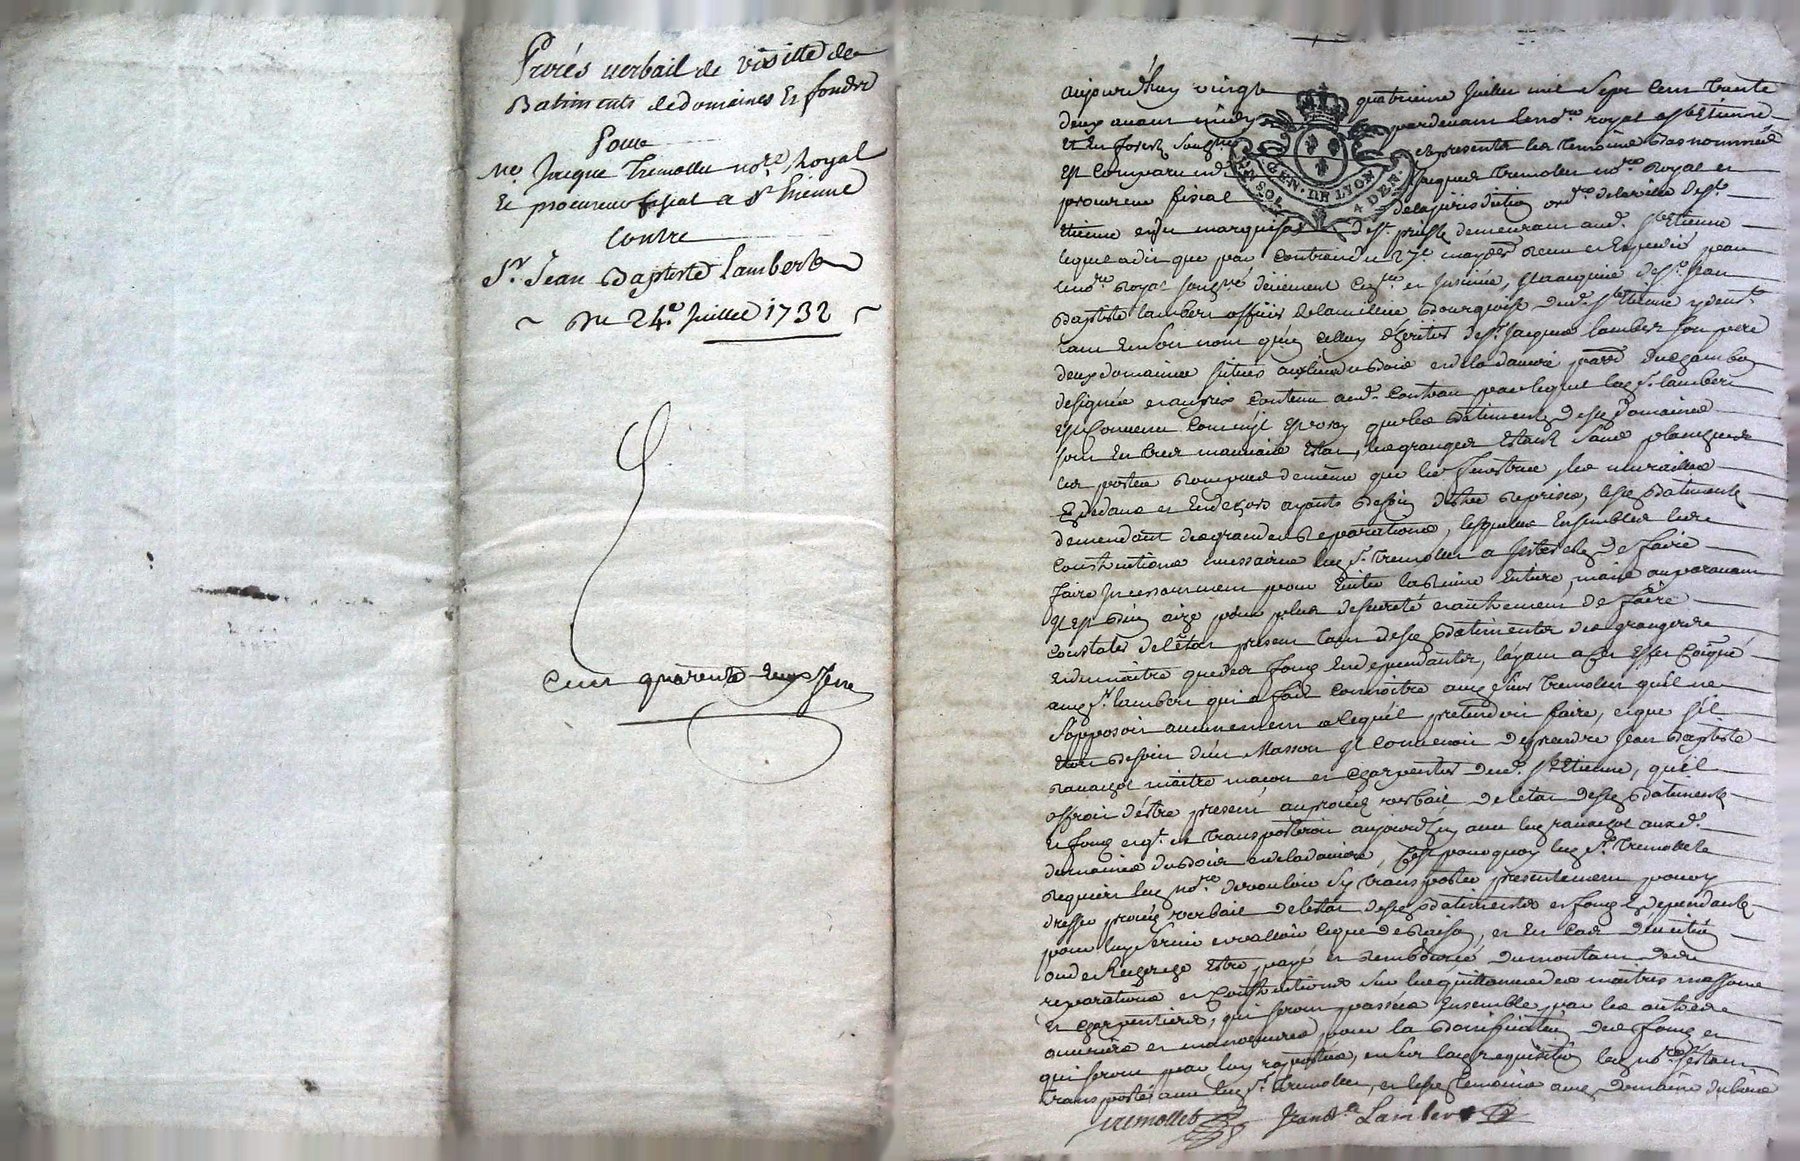 Procés verbail de visitte de
Batiments de domaines et fondz
Pour
Me Jacque Tremollet nore Royal
et procureur fiscal a St Etienne
Contre
Sr Jean Baptiste Lambert
Du 24e Juillet 1732
cent quarente
aujourd'huy vingt quatrieme Juillet mil sept cent trente
deux avant midy pardevant le nore royal a St Etienne
et en forest soubzne et presents les temoins bas nommés
est comparu Me Jacques Tremollet nore Royal et
procureur fiscal de la jurisdiction ordre de la ville de St
Etienne et du marquisat de St priest demeurant aud. St Etienne
lequel a dit que par contrat du 27e may der receu et expedié par
le nore Royal soubzne deuement et insinué, il a acquis de Sr Jean
Baptiste Lambert officier de la milice Bourgeoise dud. St Etienne
tant en son nom qu'en celluy d'heritier de Sr Jacques Lambert son pere
deux domaines situés aux lieux du bois et de la
designés et contenu aud. contrat par lequel led. Sr Lambert
est convenu comme il est vray que les Batiments desd. domaines
sont en tres mauvais estat, les granges estant sans planchers
les portes rompues de meme que les fenestres, les murailles
en dedans et en dehors ayants besoin d'estre reprises, lesd. Batiments
demendant des grandes reparations, lesquelles ensembles les
constructions necessaires led. Sr Tremollet a de faire
faire incessamment pour eviter la Ruine entiere, mais auparavant
il est bien aize pour plus de sureté de faire
constater de l'état present tant desd. Batiments des granges
du maitre que des fonds en dependants,
aud. Sr Lambert qui a fait connoitre aud. Sieur Tremollet qu'il ne
s'opposoit aucunement a ce qu'il pretendoit faire, et que s'il
etoit besoin d'un Masson il convenoit de prendre Jean Baptiste
Ravachol maitre macon et charpentier dud. St Etienne, qu'il
offroit d'être present au procés verbail de l'etat desd. Batiments
et fonds et de se transporter aujourd'huy avec led. Ravachol auxd.
domaines du bois et de la c'est pourquoy led. Sr Tremollet
requiert led. nore de vouloir s'y transporter presentement pour y
dresser procés verbail de l'etat desd. Batiments et fonds dependants
pour luy servir et valloir ce que de Raison, et en cas d'
estre payé et remboursé du montant des
reparations et constructions sur les quittances des maitres massons
et charpentiers, qui seront passées ensemble par les autres
ouvriers et manoeuvres pour la bonification des fonds et
qui seront par luy raportées, et sur lad. requisition led. nore s'estant
transporté avec led. Sr Tremollet, et lesd. temoins aud. domaine du bois
Tremollet Jean Bte Lambert
GEN. DE LYON
4 DEN.